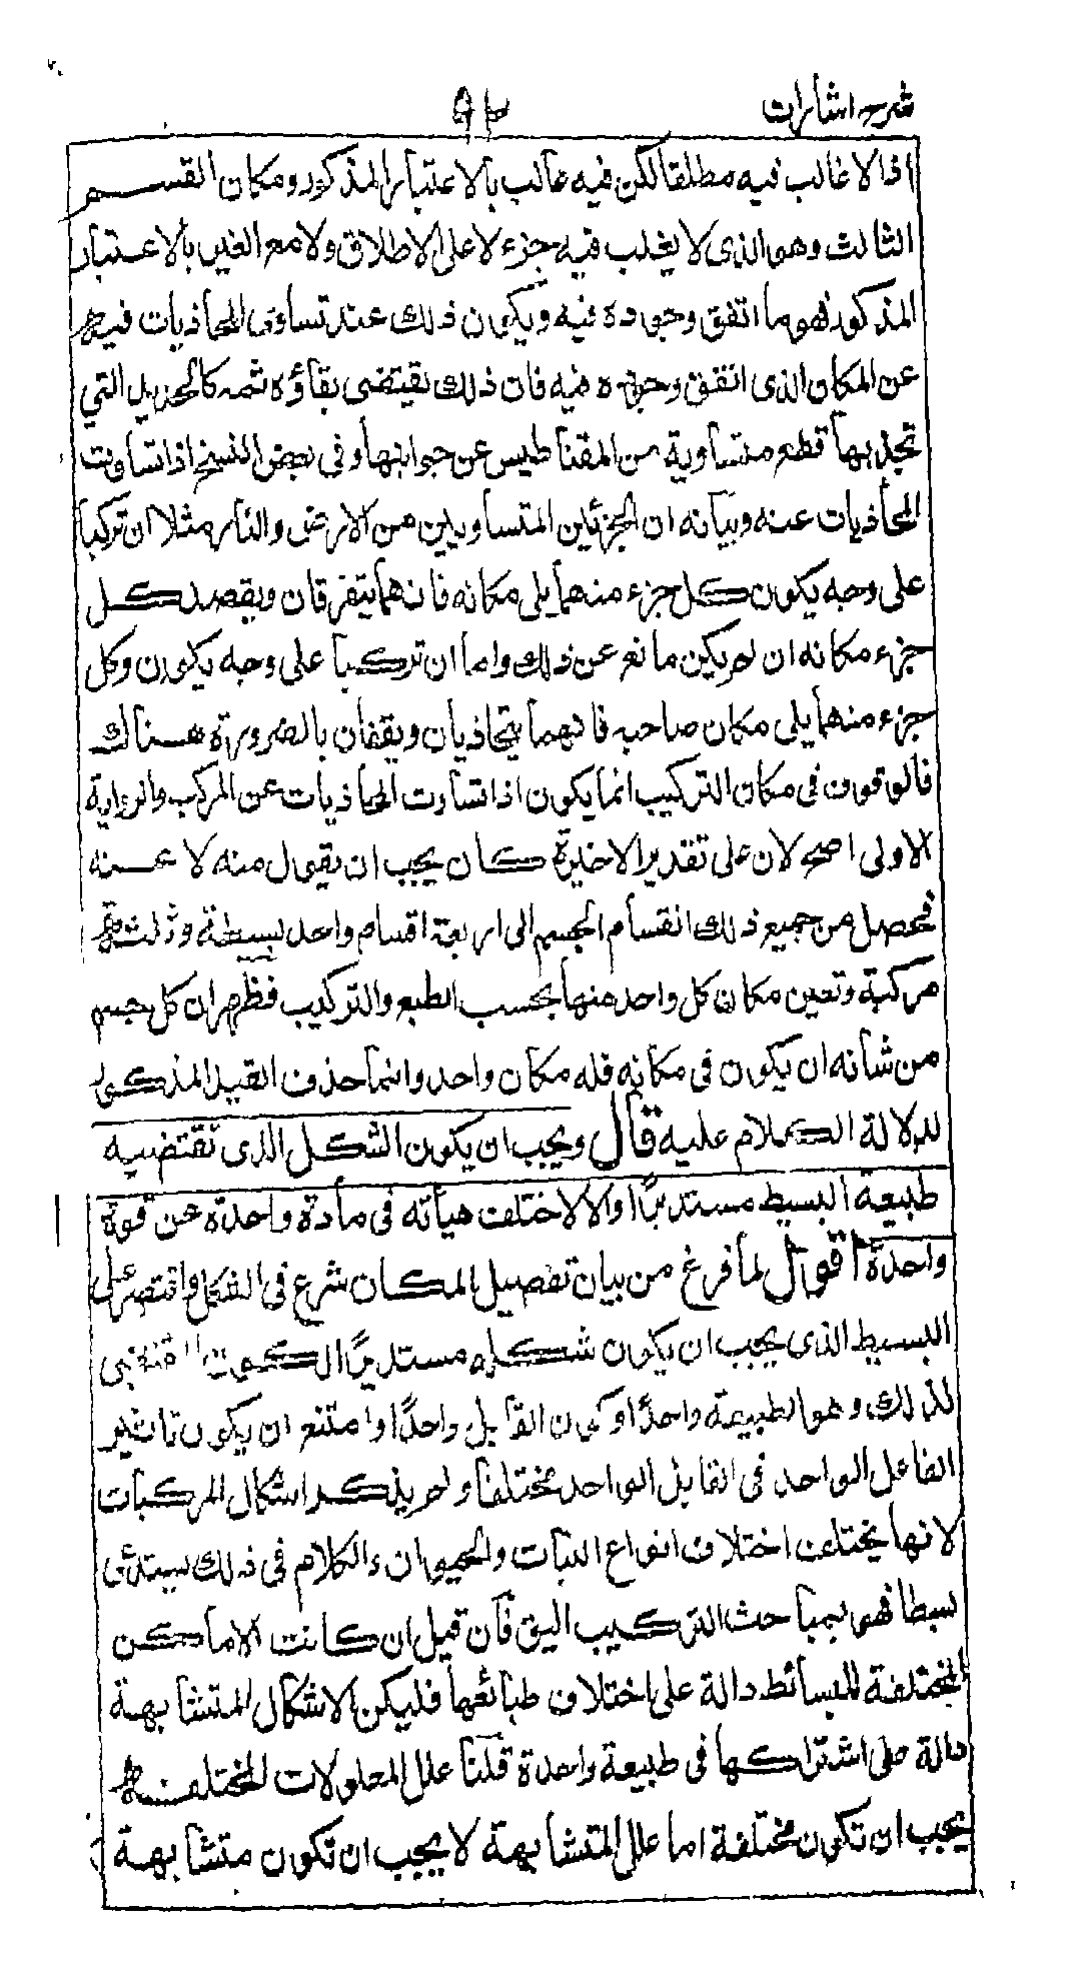 شرح اشارات ٩٢
اذا لا غالب فيه مطلقا لكن فيه غالب بالاعتبار المذكور ومكان القسم
الثالث وهو الذى لا يغلب فيه جزء لا على الاطلاق ولا مع الغير بالاعتبار
المذكور فهو ما اتفق وجوده فيه ويكون ذلك عند تساوى المحاذيات فيه
عن المكان الذى اتفق وجوده فيه فان ذلك يقتضى بقاؤه ثمه كالحديد التي
تجذبها قطع متساوية من المقناطيس عن جوانبها وفى بعض النسخ اذا تساوت
المحاذيات عنه وبيانه ان الجزئين المتساويين من الارض والنار مثلا ان تركبا
على وجه يكون كل جزء منهما يلى مكانه فانهما يتفرقان ويقصد كل
جزء مكانه ان لم يكن مانع عن ذلك واما ان تركبا على وجه يكون وكل
جزء منهما يلى مكان صاحبه فانهما يتحاذيان ويقفان بالضرورة هناك
فالوقوف فى مكان التركيب انما يكون اذا تساوت المحاذيات عن المركب والرواية
الاولى اصح لان على تقدير الاخيرة كان يجب ان يقول منه لا عنه
فحصل من جميع ذلك انقسام الجسم الى اربعة اقسام واحد بسيطة وثلثة
مركبة وتعين مكان كل واحد منها بحسب الطبع والتركيب فظهر ان كل جسم
من شأنه ان يكون فى مكانه فله مكان واحد وانما حذف القيد المذكور
لدلالة الكلام عليه قال ويجب ان يكون الشكل الذى تقتضيه
طبيعة البسيط مستديرًا والا لاختلف هيأته فى مادة واحدة عن قوة
واحدة اقول لما فرغ من بيان تفصيل المكان شرع فى الشكل واقتصر على
البسيط الذى يجب ان يكون شكله مستديرًا لكون المقتضى
لذلك وهو الطبيعة واحدًا وكون القابل واحدًا وامتنع ان يكون تاثير
الفاعل الواحد فى القابل الواحد مختلفا ولم يذكر اشكال المركبات
لانها يختلف اختلاف انواع النبات والحيوان والكلام فى ذلك يستدعى
بسطا فهو بمباحث التركيب اليق فان قيل ان كانت الاماكن
المختلفة للبسائط دالة على اختلاف طبائعها فليكن الاشكال المتشابهة
دالة على اشتراكها فى طبيعة واحدة قلنا علل المعلولات المختلفة
يجب ان تكون مختلفة اما علل المتشابهة لا يجب ان تكون متشابهة